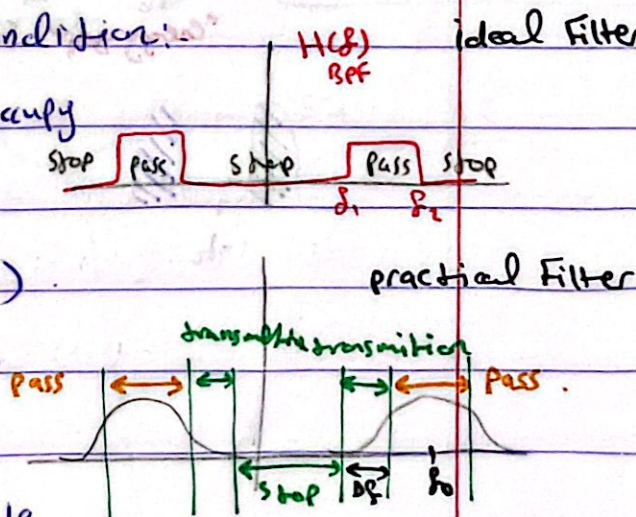 ndition:-
H(f)
BPF
ideal Filter
ccupy
stop pass stop pass stop
f1 f2
)
practical Filter
transmition transmition
pass pass.
stop Δf f0